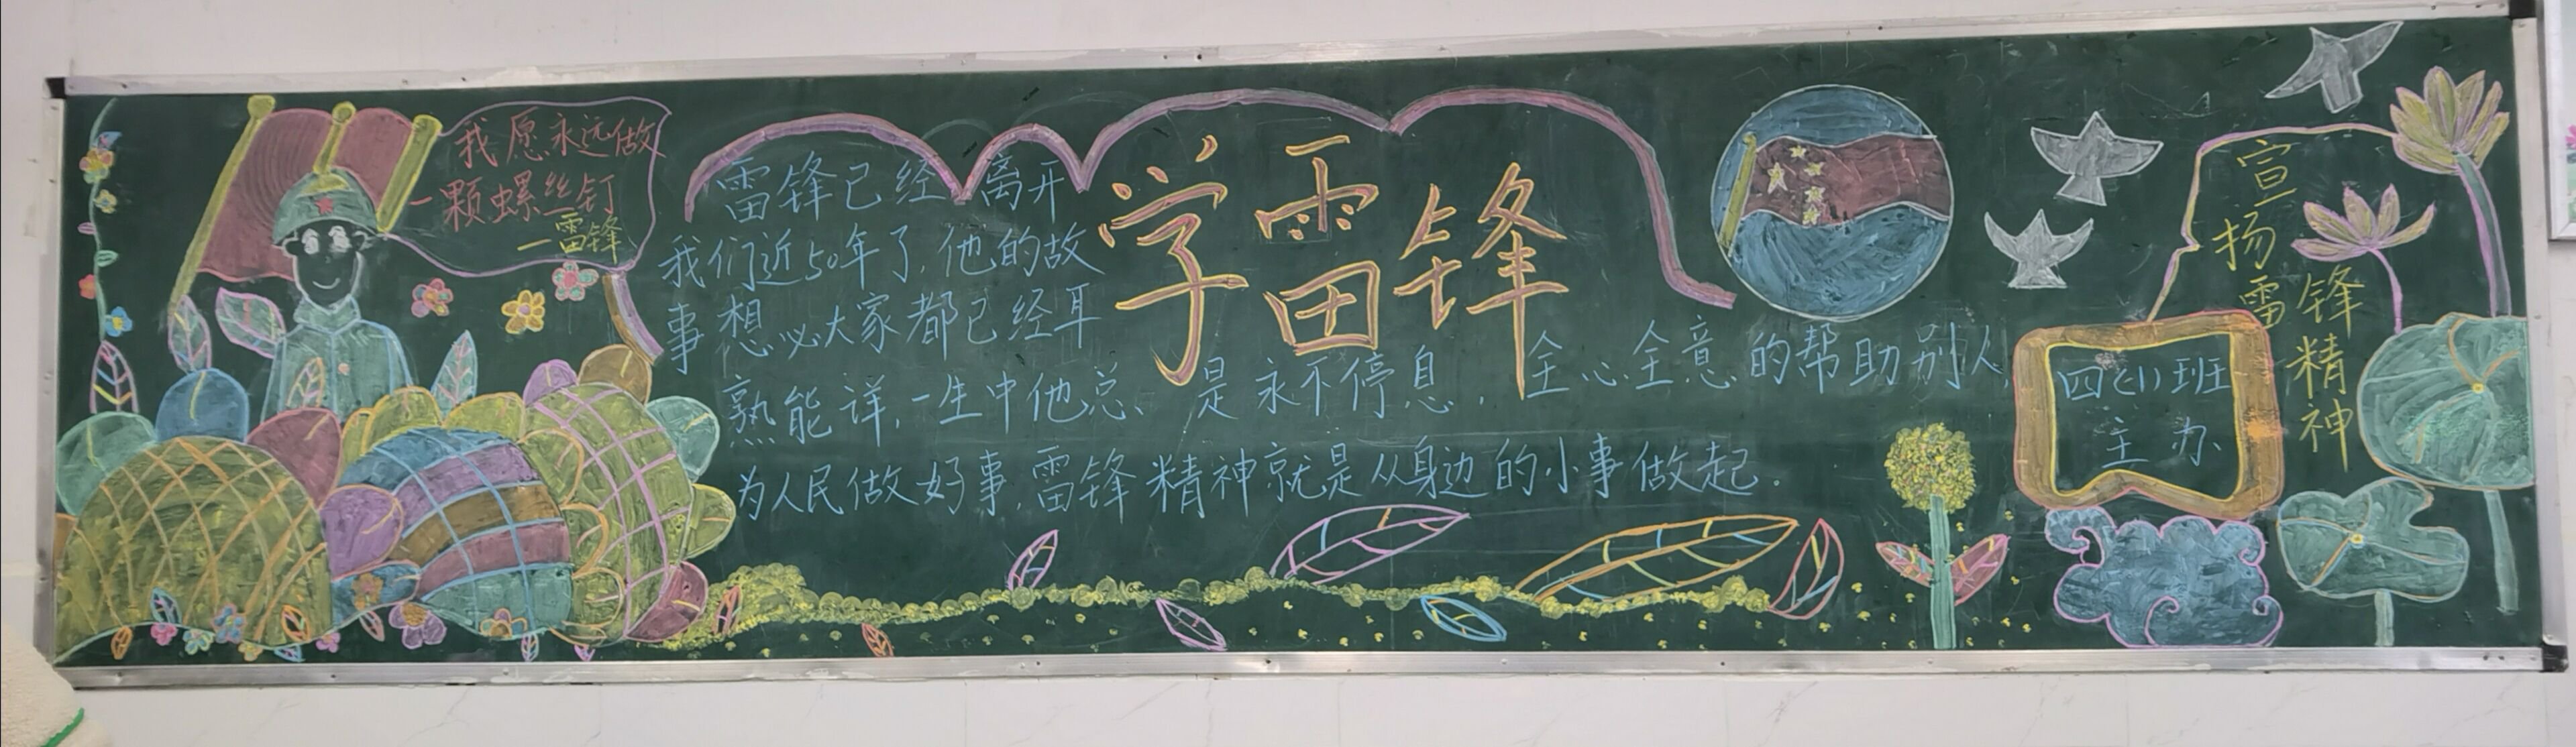 我愿永远做
一颗螺丝钉
—雷锋
学雷锋
雷锋已经离开
我们近50年了,他的故
事想必大家都已经耳
熟能详,一生中他总、是永不停息,全心全意的帮助别人,
为人民做好事,雷锋精神就是从身边的小事做起.
宣扬雷锋精神
四(1)班
主办